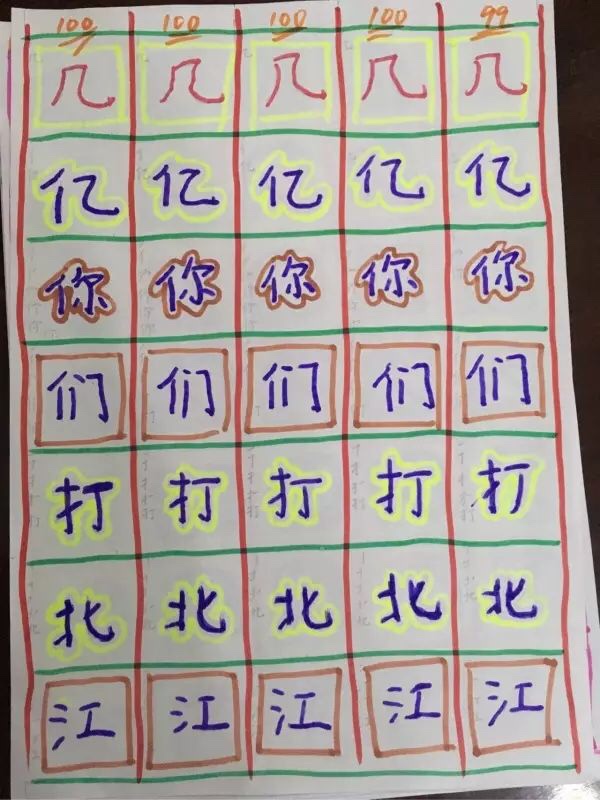 100 100 100 100 99
几 几 几 几 几
亿 亿 亿 亿 亿
你 你 你 你 你
们 们 们 们 们
打 打 打 打 打
北 北 北 北 北
江 江 江 江 江